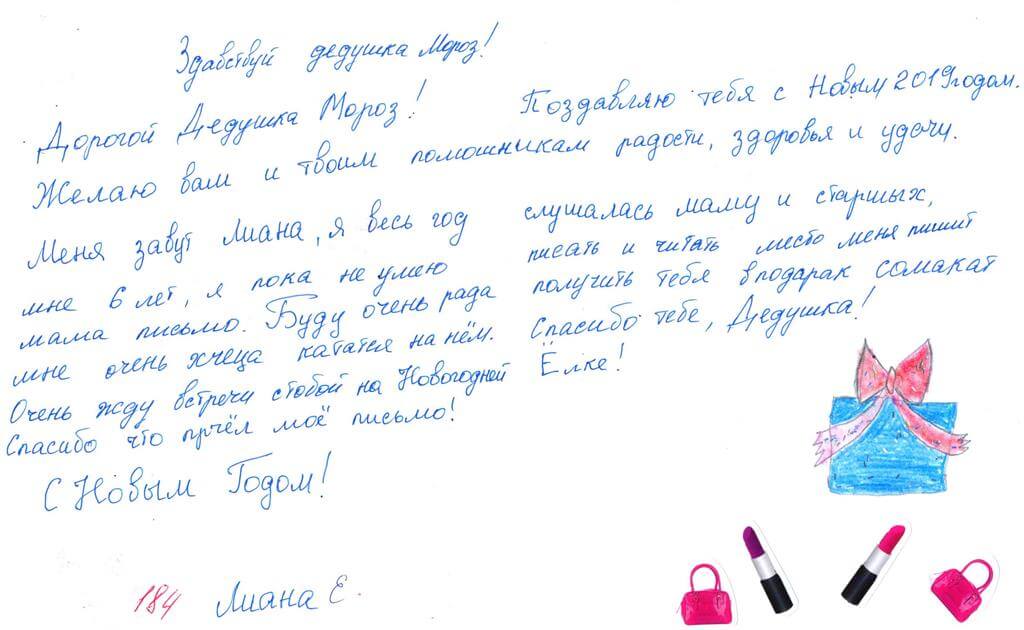 Здавствуй дедушка Мороз!
Дорогой Дедушка Мороз! Поздавляю тебя с Новым 2019годом.
Желаю вам и твоим помошникам радости, здоровья и удачи.
Меня завут Лиана, я весь год слушалась маму и старшых,
мне 6 лет, я пока не умею писать и читать место меня пишит
мама письмо. Буду очень рада получить тебя вподарак самакат
мне очень хчеца кататся на нём. Спасибо тебе, Дедушка!
Очень жду встречи стобой на Новогодней Ёлке!
Спасибо что прчёл моё письмо!
С Новым Годом!
184 Лиана Е.